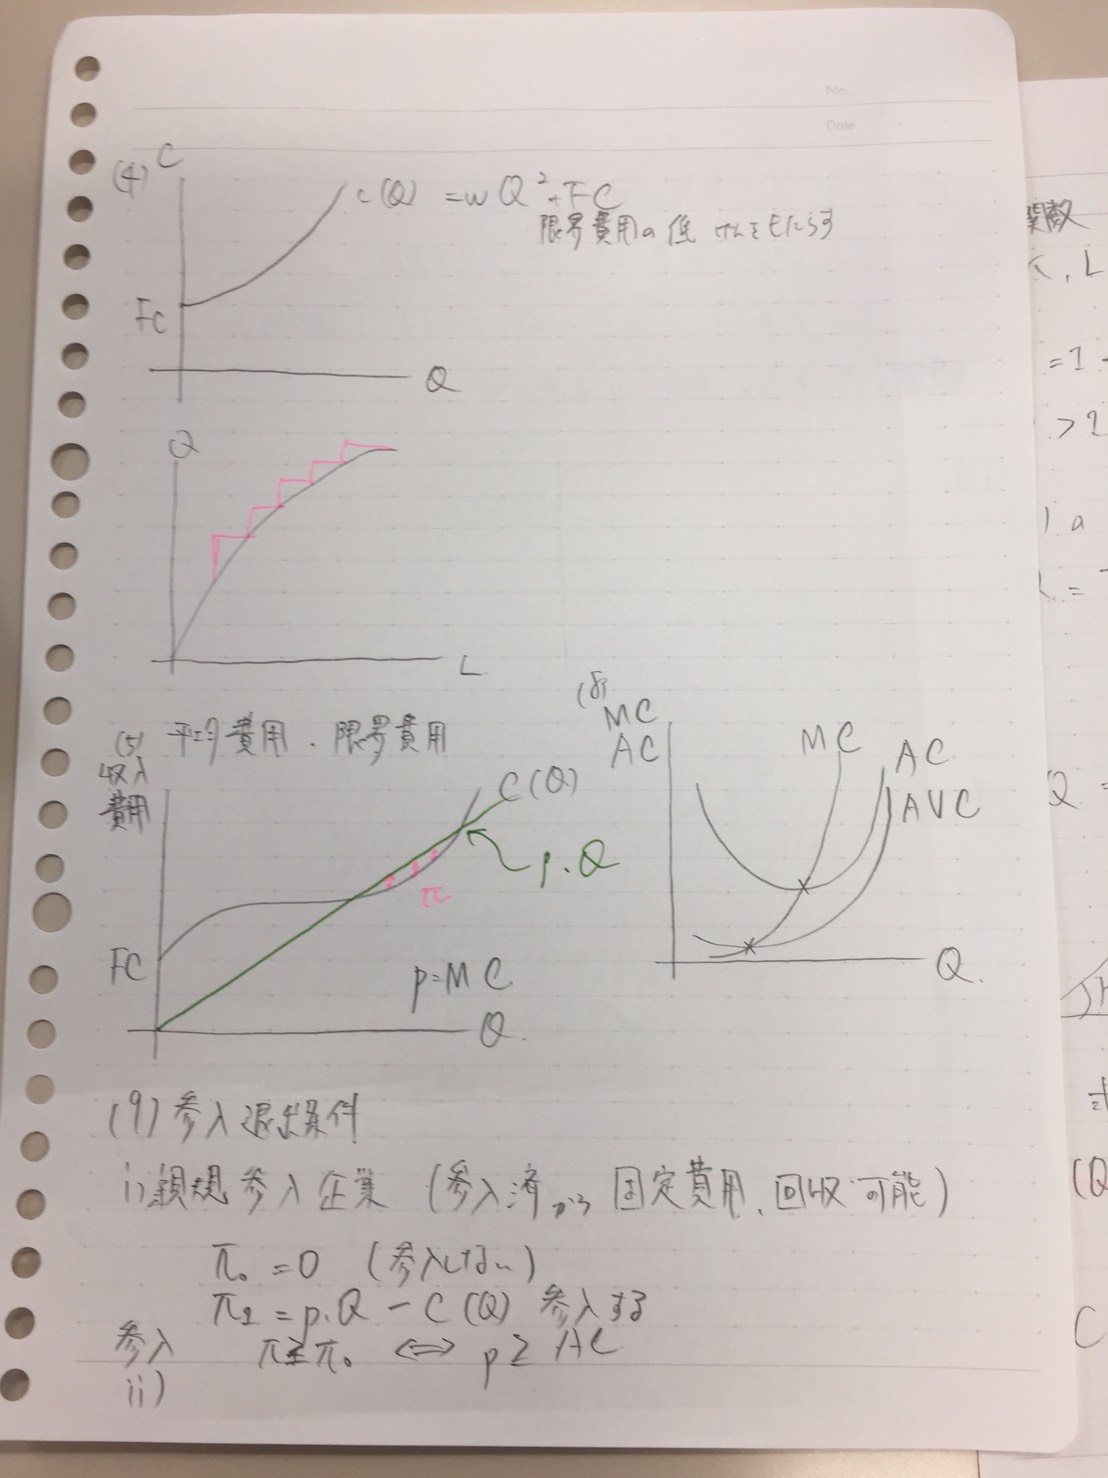 No.
Date
(4) C
c(Q) = wQ²+FC
限界費用の低 をもたらす
FC
Q
Q
L
(5) 平均費用、限界費用
収入
費用
C(Q)
p.Q
π
FC
p=MC
Q.
(8)
MC
AC
MC
AC
AVC
Q.
(9) 参入退出条件
i) 新規参入企業 (参入済 固定費用、回収可能)
π₀ = 0 (参入しない)
= p.Q - C(Q) 参入する
参入 ⇔ p≥AC
ii)
関数
K, L
=1
>1
Q =
(Q
C